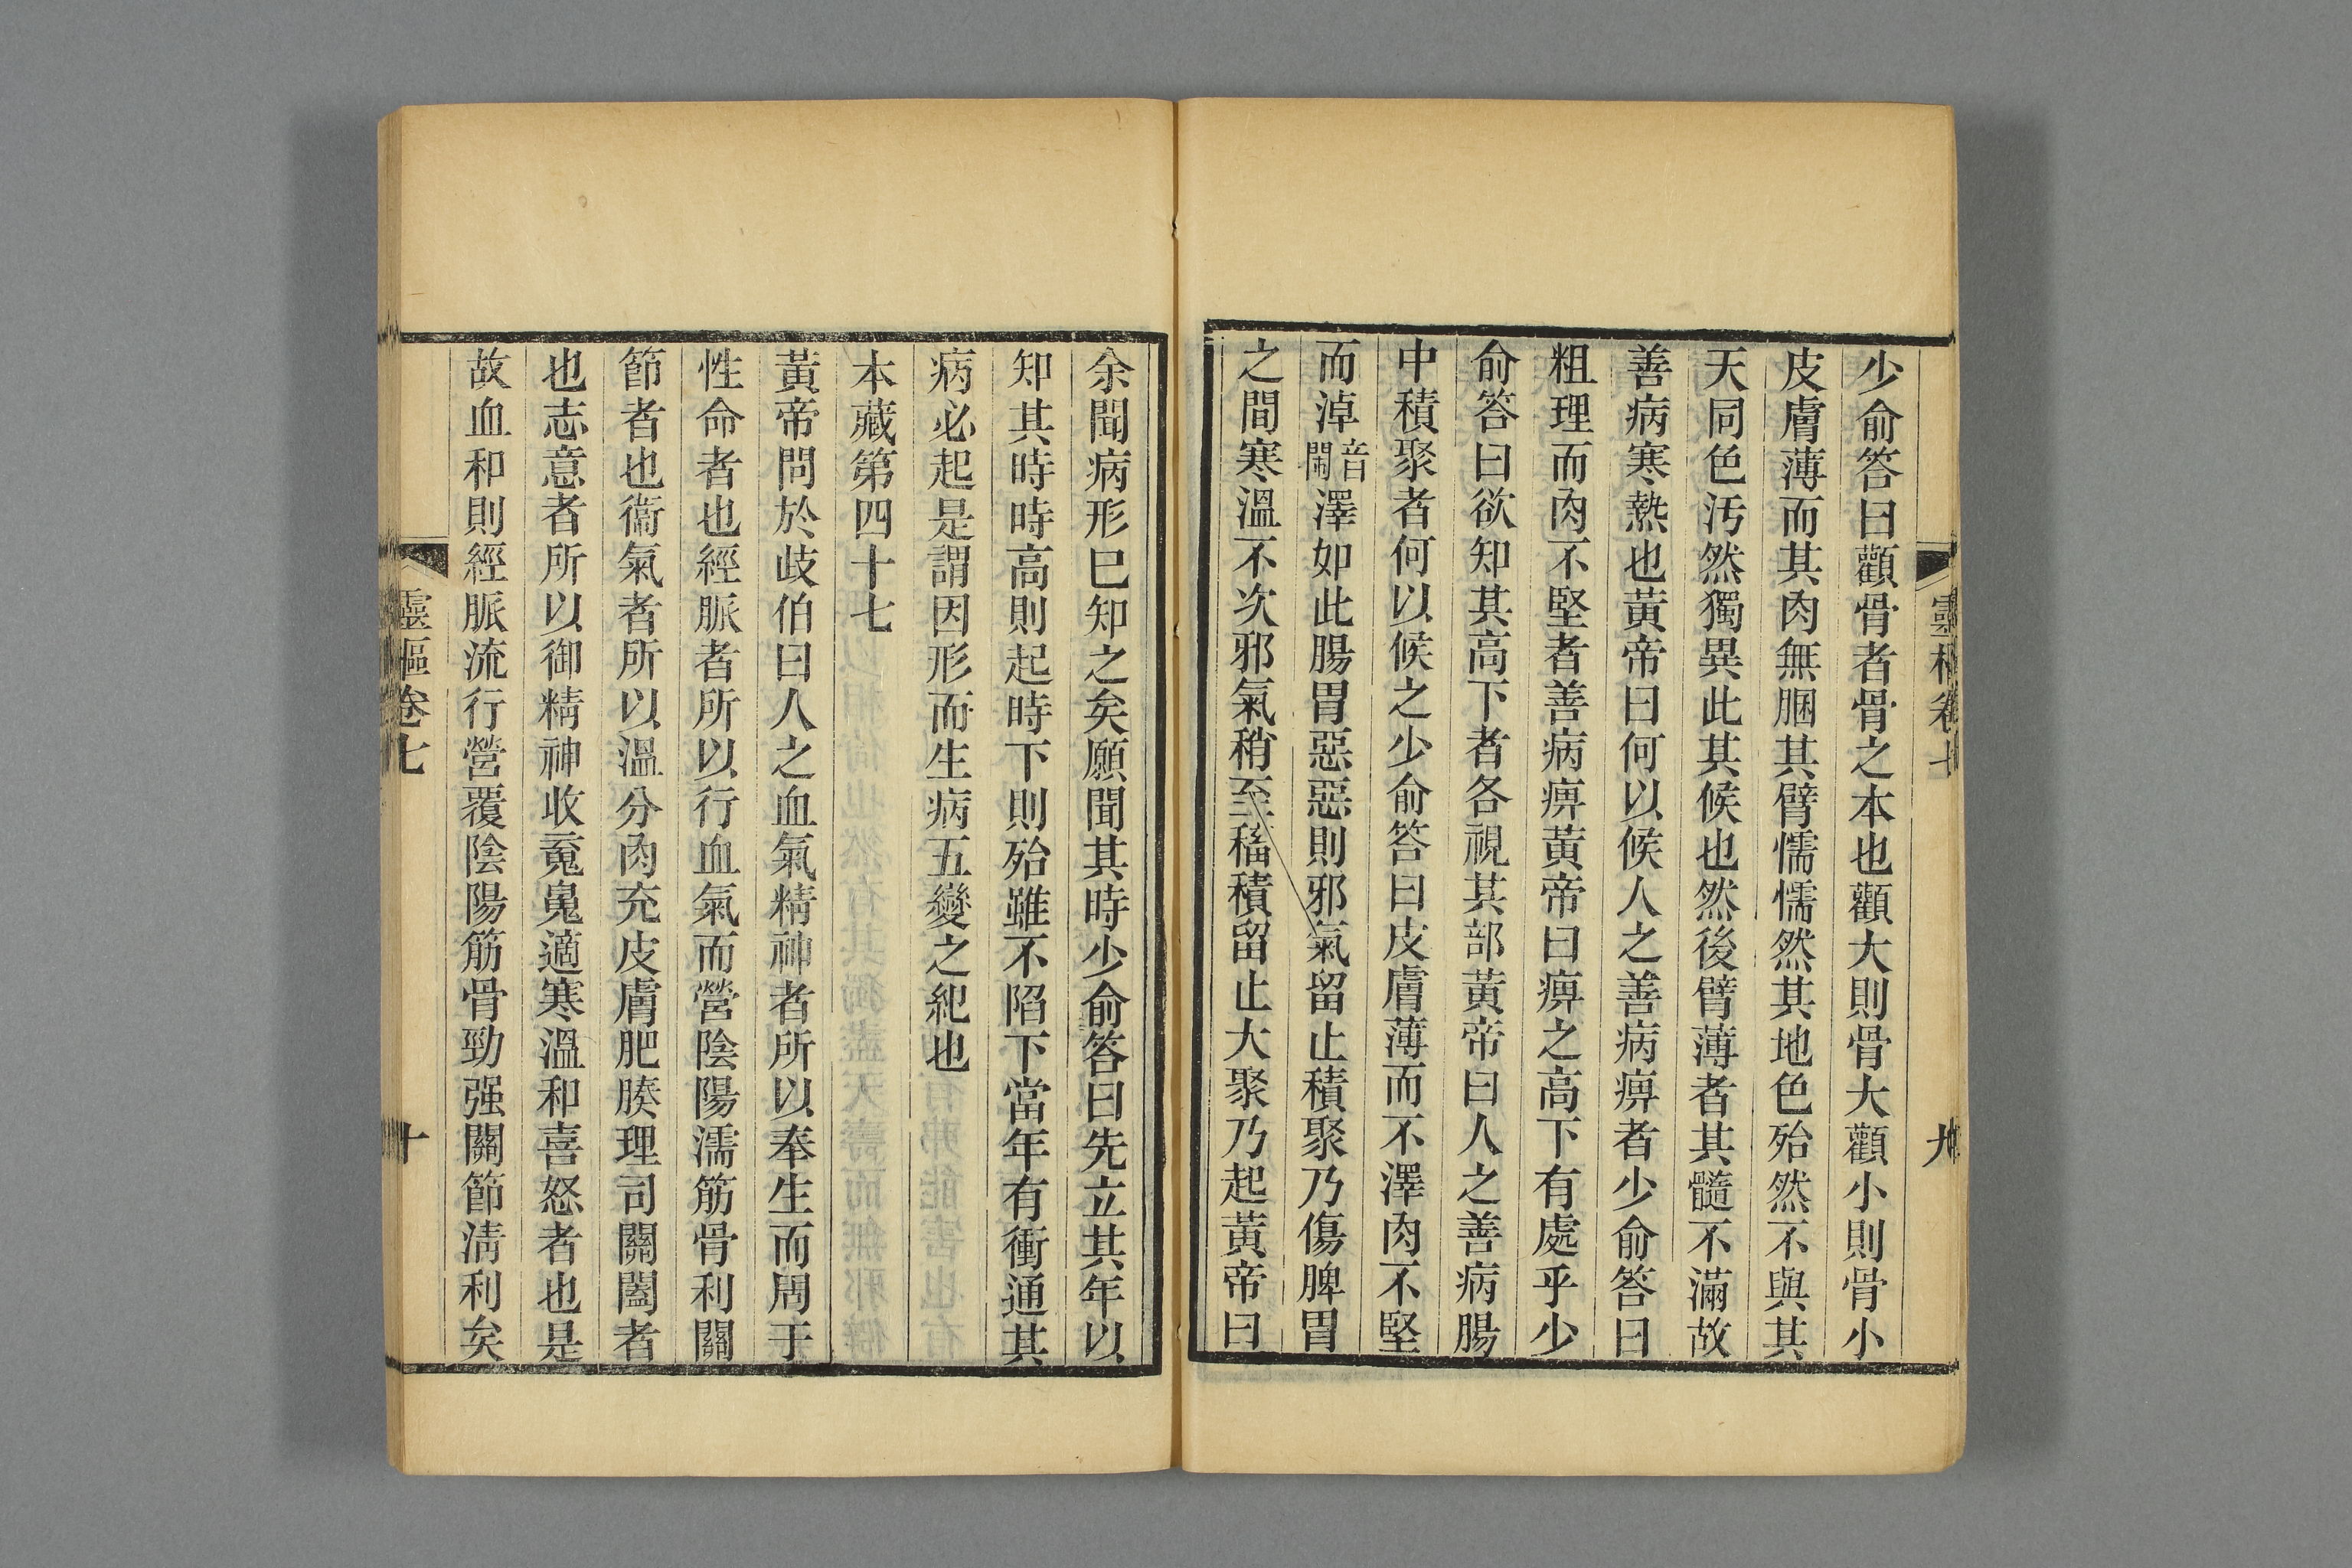 少俞答曰顴骨者骨之本也顴大則骨大顴小則骨小
皮膚薄而其肉無䐃其臂懦懦然其地色殆然不與其
天同色汚然獨異此其候也然後臂薄者其髓不滿故
善病寒熱也黃帝曰何以候人之善病痹者少俞答曰
粗理而肉不堅者善病痹黃帝曰痹之高下有處乎少
俞答曰欲知其高下者各視其部黃帝曰人之善病腸
中積聚者何以候之少俞答曰皮膚薄而不澤肉不堅
而淖音閙澤如此腸胃惡惡則邪氣留止積聚乃傷脾胃
之間寒溫不次邪氣稍至稸積留止大聚乃起黃帝曰
靈樞卷七
九
余聞病形已知之矣願聞其時少俞答曰先立其年以
知其時時高則起時下則殆雖不陷下當年有衝通其
病必起是謂因形而生病五變之紀也
本藏第四十七
黃帝問於歧伯曰人之血氣精神者所以奉生而周于
性命者也經脈者所以行血氣而營陰陽濡筋骨利關
節者也衞氣者所以溫分肉充皮膚肥腠理司關闔者
也志意者所以御精神收䰟魄適寒溫和喜怒者也是
故血和則經脈流行營覆陰陽筋骨勁强關節淸利矣
靈樞卷七
十